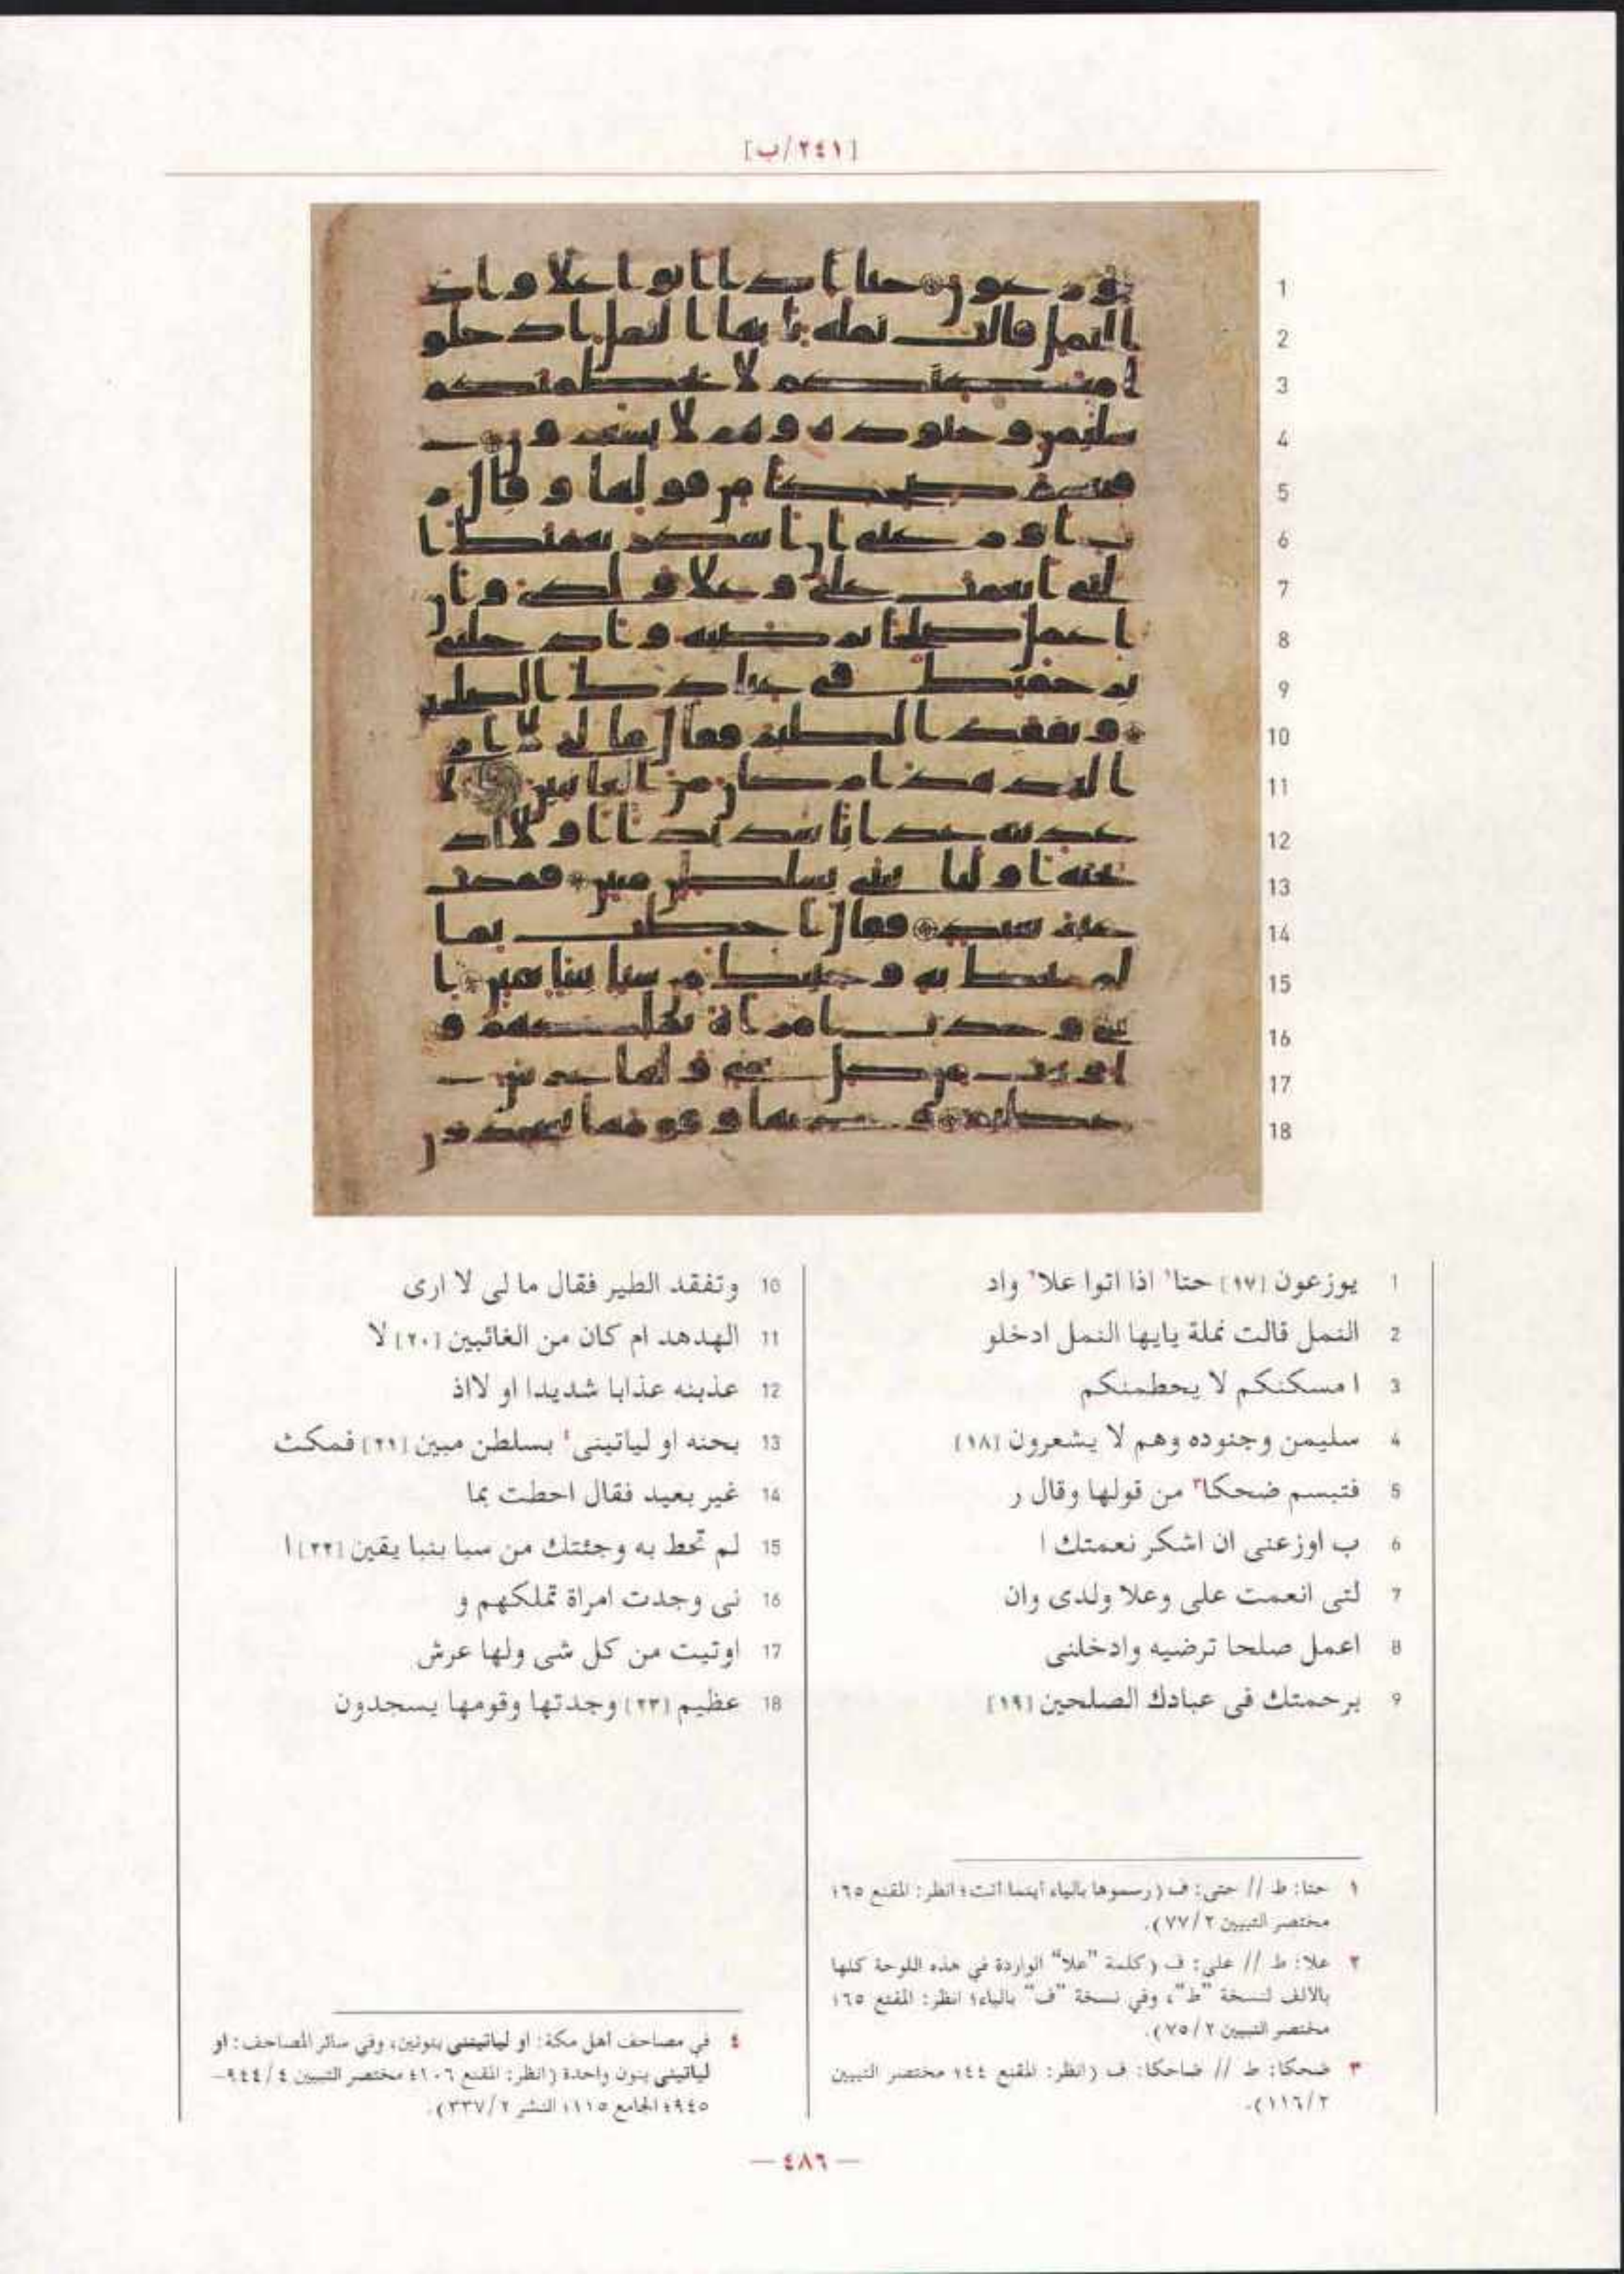 [٢٤١/ب]
1 يوزعون [١٧] حتا¹ اذا اتوا علا² واد
2 النمل قالت نملة يايها النمل ادخلو
3 ا مسكنكم لا يحطمنكم
4 سليمن وجنوده وهم لا يشعرون [١٨]
5 فتبسم ضحكا³ من قولها وقال ر
6 ب اوزعنى ان اشكر نعمتك ا
7 لتى انعمت على وعلا ولدى وان
8 اعمل صلحا ترضيه وادخلنى
9 برحمتك فى عبادك الصلحين [١٩]
10 وتفقد الطير فقال ما لى لا ارى
11 الهدهد ام كان من الغائبين [٢٠] لا
12 عذبنه عذابا شديدا او لااذ
13 بحنه او لياتينى⁴ بسلطن مبين [٢١] فمكث
14 غير بعيد فقال احطت بما
15 لم تحط به وجئتك من سبا بنبا يقين [٢٢] ا
16 نى وجدت امراة تملكهم و
17 اوتيت من كل شى ولها عرش
18 عظيم [٢٣] وجدتها وقومها يسجدون
١ حتا: ط // حتى: ف (رسموها بالياء أينما أتت؛ انظر: المقنع ٦٥؛
مختصر التبيين ٢/٧٧).
٢ علا: ط // على: ف (كلمة "علا" الواردة في هذه اللوحة كلها
بالألف لنسخة "ط"، وفي نسخة "ف" بالياء؛ انظر: المقنع ٦٥؛
مختصر التبيين ٢/٧٥).
٣ ضحكا: ط // ضاحكا: ف (انظر: المقنع ٤٤؛ مختصر التبيين
٢/١١٦).
٤ في مصاحف أهل مكة: او لياتيننى بنونين، وفي سائر المصاحف: او
لياتينى بنون واحدة (انظر: المقنع ١٠٦؛ مختصر التبيين ٤/٩٤٤–
٩٤٥؛ الجامع ١١٥؛ النشر ٢/٣٣٧).
— ٤٨٦ —